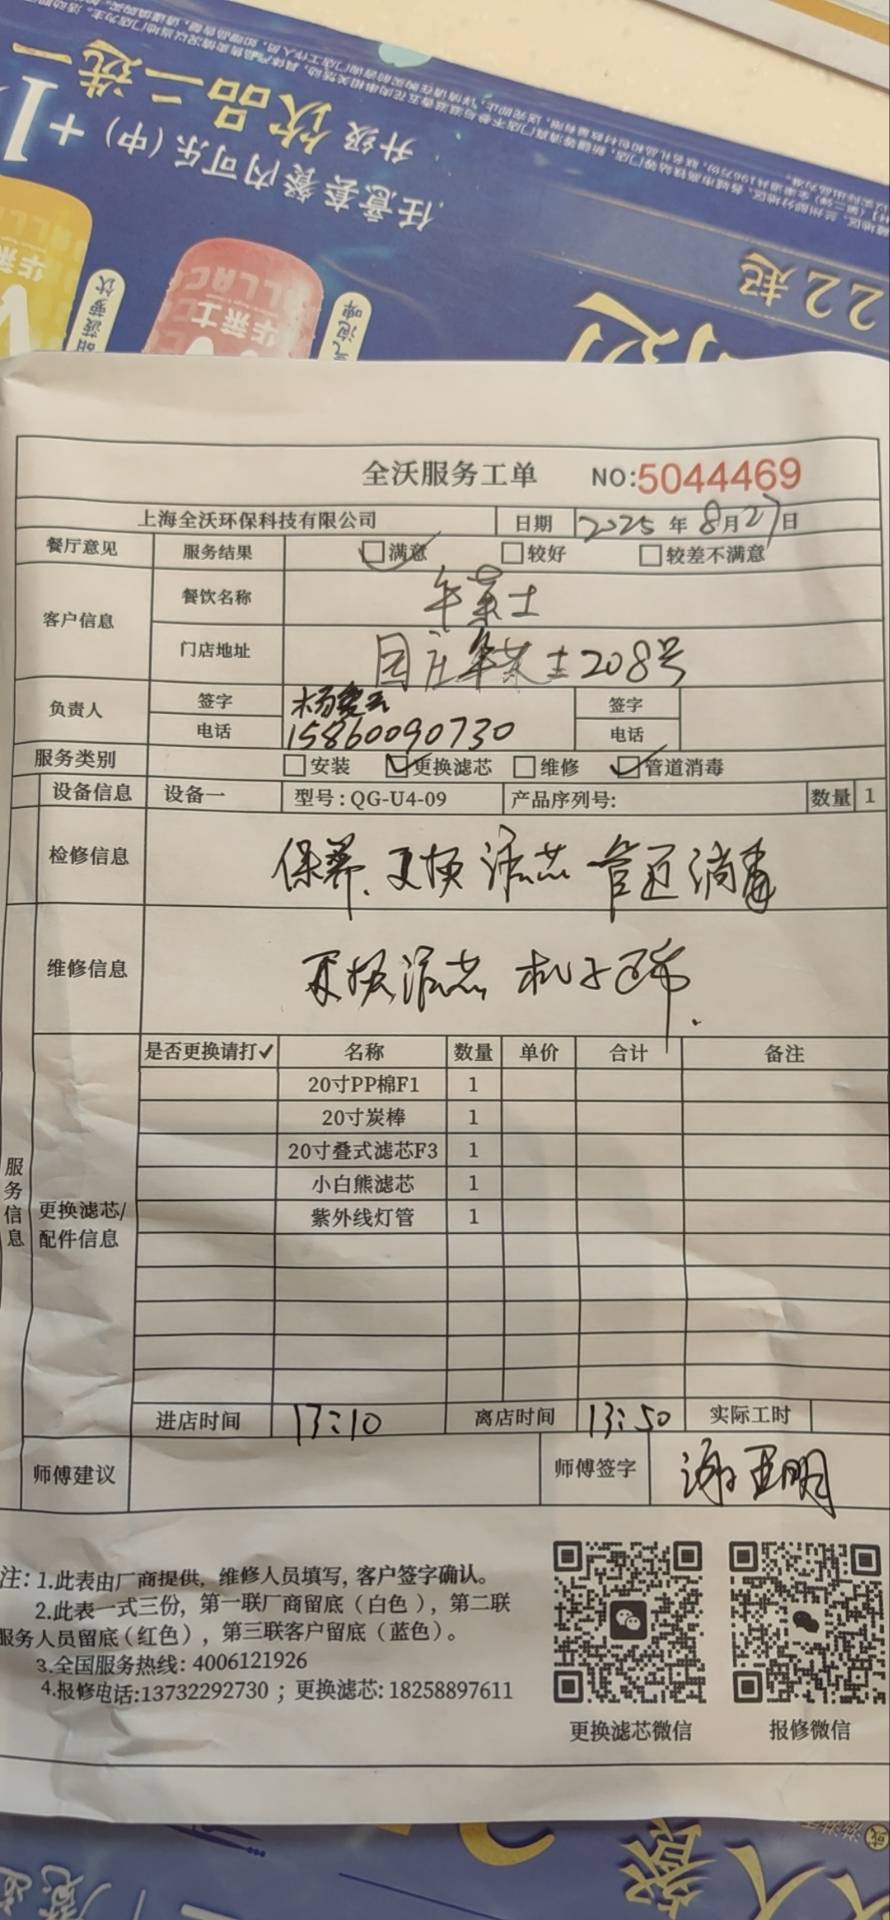 任意套餐内可乐(中)+1
升级饮品二选一
22起
华莱士
华莱士
全沃服务工单 NO:5044469
上海全沃环保科技有限公司 日期 2025年8月27日
餐厅意见 服务结果 满意 较好 较差不满意
客户信息 餐饮名称 华莱士
门店地址 华莱士208号
负责人 签字 签字
电话 15860090730 电话
服务类别 安装 更换滤芯 维修 管道消毒
设备信息 设备一 型号:QG-U4-09 产品序列号: 数量 1
检修信息 保养.更换滤芯 管道消毒
维修信息 更换滤芯 机子
服务信息
是否更换请打✓ 名称 数量 单价 合计 备注
20寸PP棉F1 1
20寸炭棒 1
20寸叠式滤芯F3 1
小白熊滤芯 1
更换滤芯/配件信息 紫外线灯管 1
进店时间 13:10 离店时间 13:50 实际工时
师傅建议 师傅签字 谢亚明
注:1.此表由厂商提供,维修人员填写,客户签字确认。
2.此表一式三份,第一联厂商留底(白色),第二联
服务人员留底(红色),第三联客户留底(蓝色)。
3.全国服务热线:4006121926
4.报修电话:13732292730;更换滤芯:18258897611
更换滤芯微信 报修微信